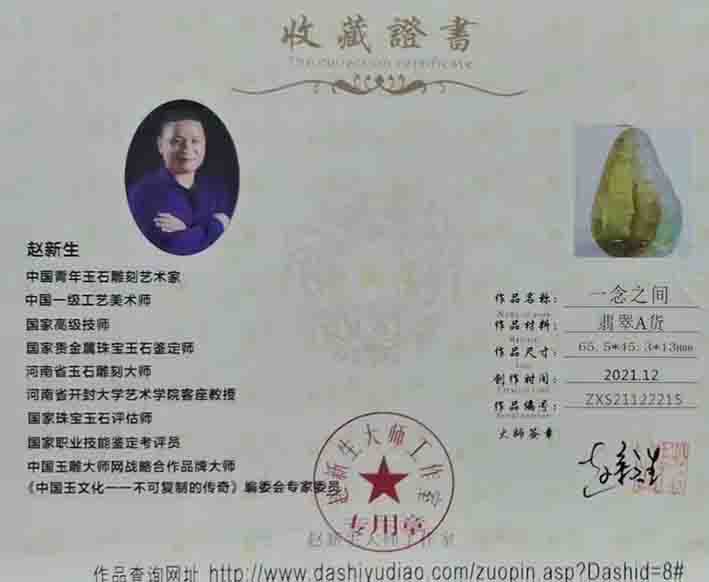 收藏證書
The collection certificate
赵新生
中国青年玉石雕刻艺术家
中国一级工艺美术师
国家高级技师
国家贵金属珠宝玉石鉴定师
河南省玉石雕刻大师
河南省开封大学艺术学院客座教授
国家珠宝玉石评估师
国家职业技能鉴定考评员
中国玉雕大师网战略合作品牌大师
《中国玉文化一一不可复制的传奇》编委会专家委员
作品名称: 一念之间
作品材料: 翡翠A货
作品尺寸: 65.5*45.3*13mm
创作时间: 2021.12
作品编号: ZXS21122215
大师签章
赵新生
赵新生大师工作室
专用章
赵新生大师工作室
作品查询网址 http://www.dashiyudiao.com/zuopin.asp?Dashid=8#